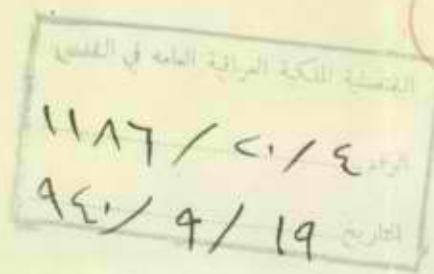 القنصلية الملكية العراقية العامة في القدس
الرقم ٤/٢٠/١١٨٦
التاريخ ١٩/٩/٩٤٠